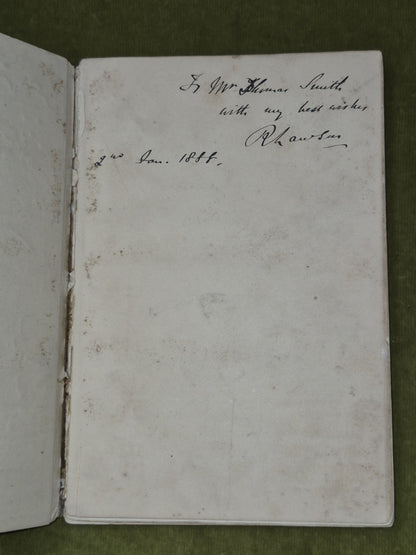 To Mr Thomas Smith
with my best wishes
R Lawson
2nd Jan. 1888.